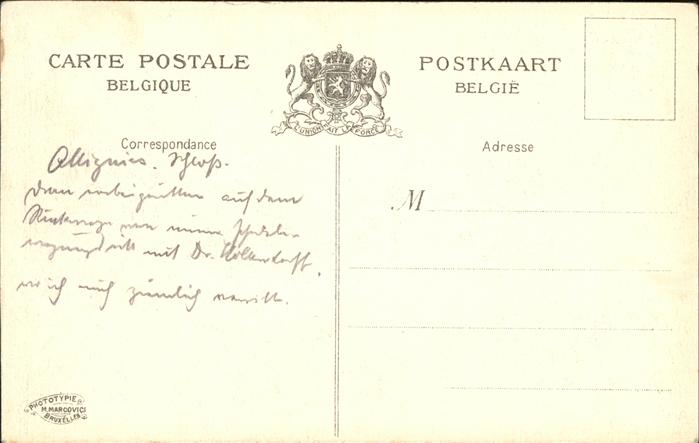 CARTE POSTALE
BELGIQUE
POSTKAART
BELGIË
L'UNION FAIT LA FORCE
Correspondance
Adresse
Attignies. Schloß.
dran vorbeigeritten auf dem
Rückwege von
mit Dr. Holtendorff,
wo ich mich ziemlich verritt.
M
PHOTOTYPIE
M. MARCOVICI
BRUXELLES